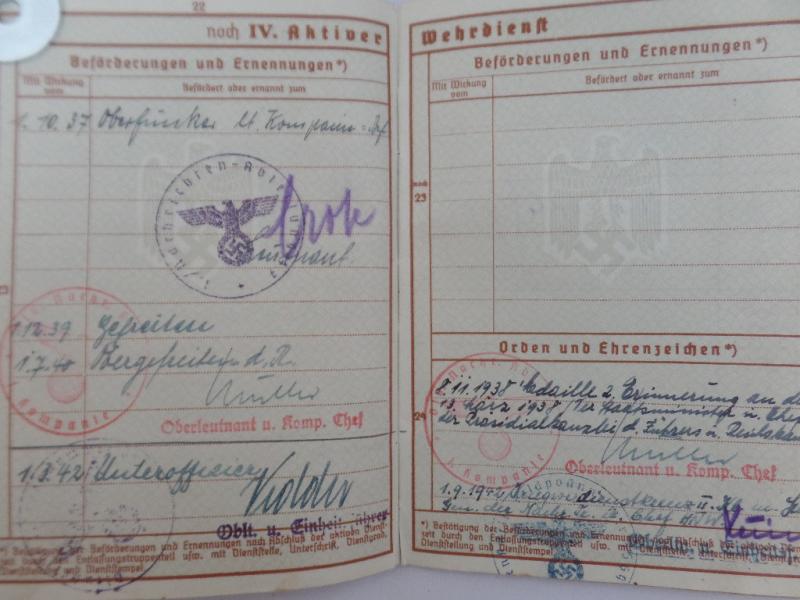 22
noch IV. Aktiver
Beförderungen und Ernennungen*)
Mit Wirkung vom
Befördert oder ernannt zum
1.10.37 Oberfunker lt. Kompanie-Bef.
Nachrichten-Abteilung
1.12.39 Gefreiten
1.7.40 Obergefreiter d. R.
Müller
Oberleutnant u. Komp. Chef
Kompanie
1.3.42 Unteroffizier
Oblt. u. Einheitsführer
*) Bestätigung der Beförderungen und Ernennungen nach Abschluß der aktiven Dienst-
zeit durch den Entlassungstruppenteil usw. mit Dienststelle, Unterschrift, Dienstgrad,
Dienststempel.
Wehrdienst
Beförderungen und Ernennungen*)
Mit Wirkung vom
Befördert oder ernannt zum
noch
23
Orden und Ehrenzeichen*)
24
8.11.1938 Medaille z. Erinnerung an den
13. März 1938 Der Staatsminister u. Chef
der Präsidialkanzlei d. Führers u. Reichskan
Müller
Oberleutnant u. Komp. Chef
Kompanie
Kriegsverdienstkreuz II. Kl. m.
*) Bestätigung der Beförderungen und Ernennungen nach Abschluß der aktiven Dienst-
zeit durch den Entlassungstruppenteil usw. mit Dienststelle,
Dienststellung und Dienststempel.